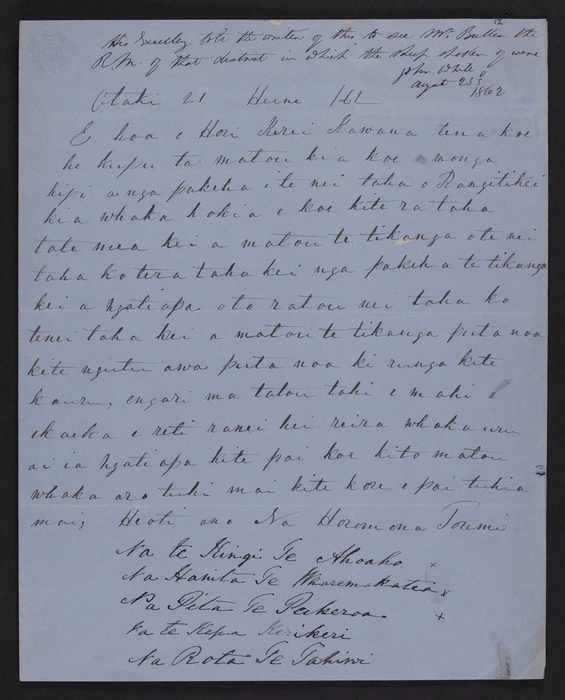 12
His Excellcy told the writer of this to see Mr Buller the
R.M. of that district in which the sheep spoken of were
John White
Augst 23rd
1862
Otaki 21 Hune 162
E hoa e Hori Kerei Kawana tena koe
he kupu ta matou kia koe monga
hipi a nga pakeha i te nei taha o Rangitikei
kia whaka hokia e koe kite ra taha
tate mea kei a matou te tikanga ote nei
taha ko tera taha kei nga pakeha te tikanga
kei a ngatiapa oto ratou nei taha ko
tenei taha kei a matou te tikanga puta noa
kite ngutu awa puta noa ki runga kite
kauru, engari ma talou tahi e mahi
ekaeka e reti ranei hei reira whaka uru
ai ia ngatiapa kite pai koe kito matou
whaka aro tuhi mai kite kore e pai tuhia
mai, Heoti ano Na Horomona Toremi
Na te Kingi Te Ahoaho x
Na Hanita Te Wharemakatea x
Na Pita Te Pukeroa x
Na te Kepa Kerikeri
Na Rota Te Tahiwi